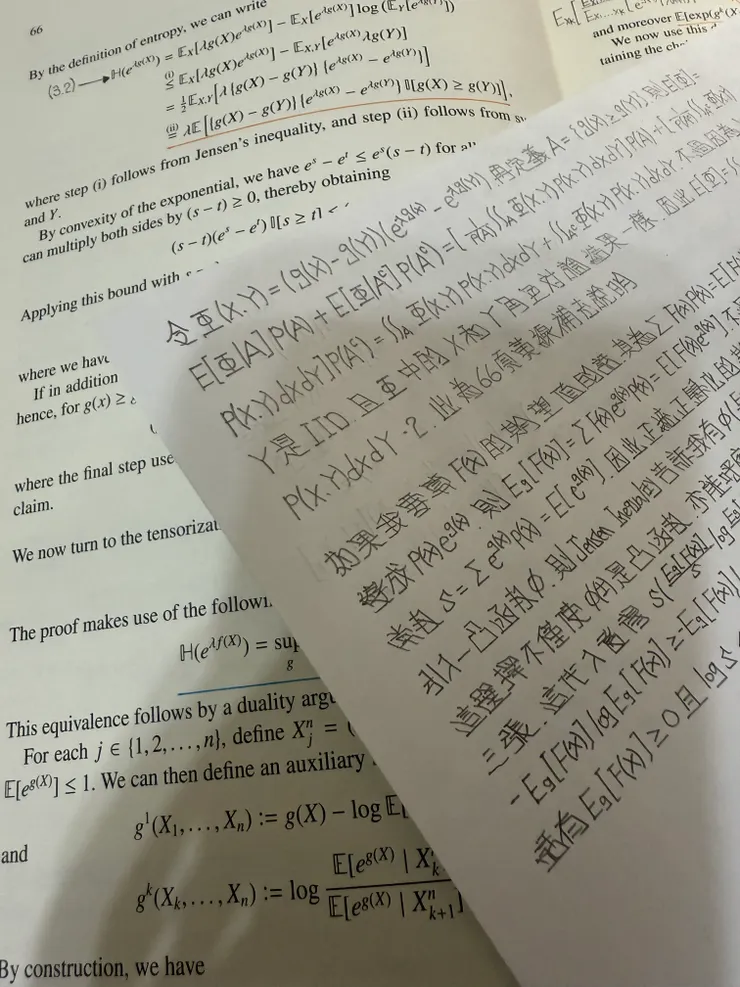 66
By the definition of entropy, we can write
(3.2) → ℍ(e^{λg(X)}) = 𝔼_X[λg(X)e^{λg(X)}] − 𝔼_X[e^{λg(X)}] log (𝔼_Y[e^{λg(Y)}])
(i) ≤ 𝔼_X[λg(X)e^{λg(X)}] − 𝔼_{X,Y}[e^{λg(X)} λg(Y)]
= ½ 𝔼_{X,Y}[λ {g(X) − g(Y)} {e^{λg(X)} − e^{λg(Y)}}]
(ii) = λ𝔼[{g(X) − g(Y)} {e^{λg(X)} − e^{λg(Y)}} 𝕀[g(X) ≥ g(Y)]],
where step (i) follows from Jensen's inequality, and step (ii) follows from
and Y.
By convexity of the exponential, we have e^s − e^t ≤ e^s(s − t) for
can multiply both sides by (s − t) ≥ 0, thereby obtaining
(s − t)(e^s − e^t) 𝕀[s ≥ t]
Applying this bound with
where we have
If in addition
hence, for g(x) ≥
where the final step use
claim.
We now turn to the tensorizat
The proof makes use of the followi
ℍ(e^{λf(X)}) = sup_g
This equivalence follows by a duality arg
For each j ∈ {1, 2, . . . , n}, define X_j^n =
𝔼[e^{g(X)}] ≤ 1. We can then define an auxiliary
g^1(X_1, . . . , X_n) := g(X) − log 𝔼[
and
g^k(X_k, . . . , X_n) := log 𝔼[e^{g(X)} | X_k / 𝔼[e^{g(X)} | X_{k+1}^n]
By construction, we have
and moreover 𝔼[exp(g^k(X
We now use this
taining the
令 Φ(X.Y) = (g(X) - g(Y))(e^{λg(X)} - e^{λg(Y)}), 再定義 A = {g(X) ≥ g(Y)}, 則 E[Φ] =
E[Φ|A]P(A) + E[Φ|A^c]P(A^c) = [1/P(A) ∬_A Φ(X.Y)P(X.Y)dXdY]P(A) + [1/P(A^c) ∬_{A^c} Φ(X.Y)
P(X.Y)dXdY]P(A^c) = ∬_A Φ(X.Y)P(X.Y)dXdY + ∬_{A^c} Φ(X.Y)P(X.Y)dXdY. 不過因為
Y是IID. 且Φ中的X和Y角色對論結果一樣. 因此 E[Φ] = ∬
P(X.Y)dXdY·2. 此為66頁黃線補充說明
如果我要算F(X)的期望值的話其為ΣF(X)P(X) = E[F(
變成P(X)e^{g(X)}. 則 Eg[F(X)] = ΣF(X)e^{g(X)}P(X) = E[F(X)e^{g(X)}]. 不
常數 S = Σe^{g(X)}P(X) = E[e^{g(X)}]. 因此正
引入一凸函數Φ. 則Jensen Inequality告訴我有Φ(
這選擇不僅使Φ(t)是凸函數. 亦能
三張. 這代入獲得 S(Eg[F(X)]/S log Eg[
- Eg[F(X)] log Eg[F(X)] ≥ -Eg[F(X)
還有 Eg[F(X)] ≥ 0 且 log S